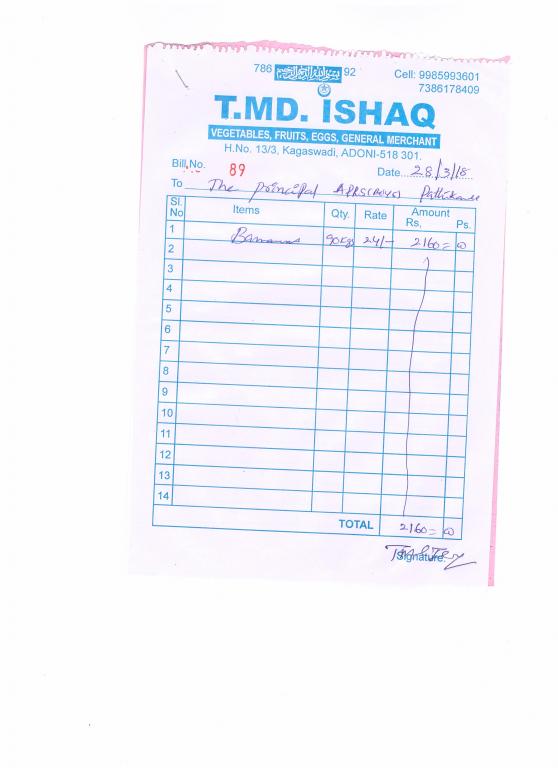 786 بسم الله الرحمن الرحيم 92
Cell: 9985993601
7386178409
T.MD. ISHAQ
VEGETABLES, FRUITS, EGGS, GENERAL MERCHANT
H.No. 13/3, Kagaswadi, ADONI-518 301.
Bill No. 89
Date 28/3/18
To The principal APRS(BOYS)
Sl. No Items Qty. Rate Amount Rs, Ps.
1 Bananas 90kgs 24/- 2160=00
2
3
4
5
6
7
8
9
10
11
12
13
14
TOTAL 2160=00
Signature.